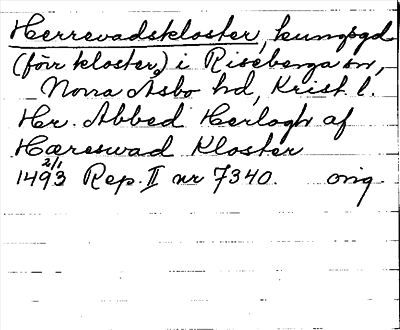 Herrevadskloster, kungsgd
(förr kloster) i Riseberga sn,
Norra Åsbo hd, Krist. l.
Hr. Abbed Herlogh af
Hæreswad Kloster
1493 2/1 Rep. II nr 7340. orig